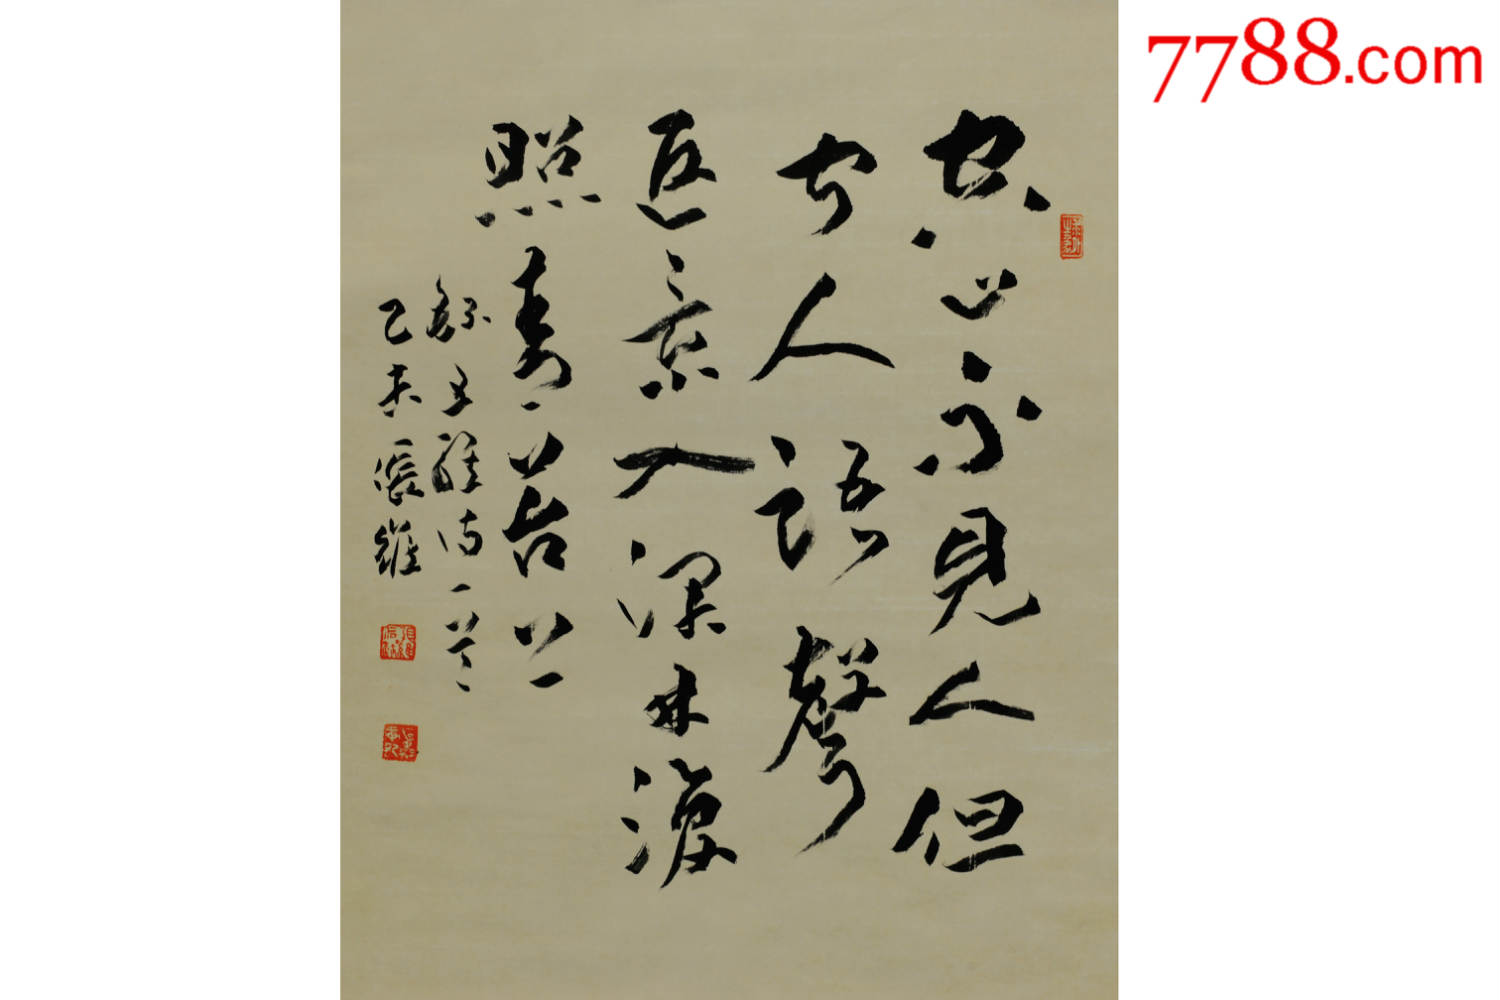 空山不見人但
聞人語聲
返景入深林復
照青苔上
録王維詩一首
乙未張維
7788.com